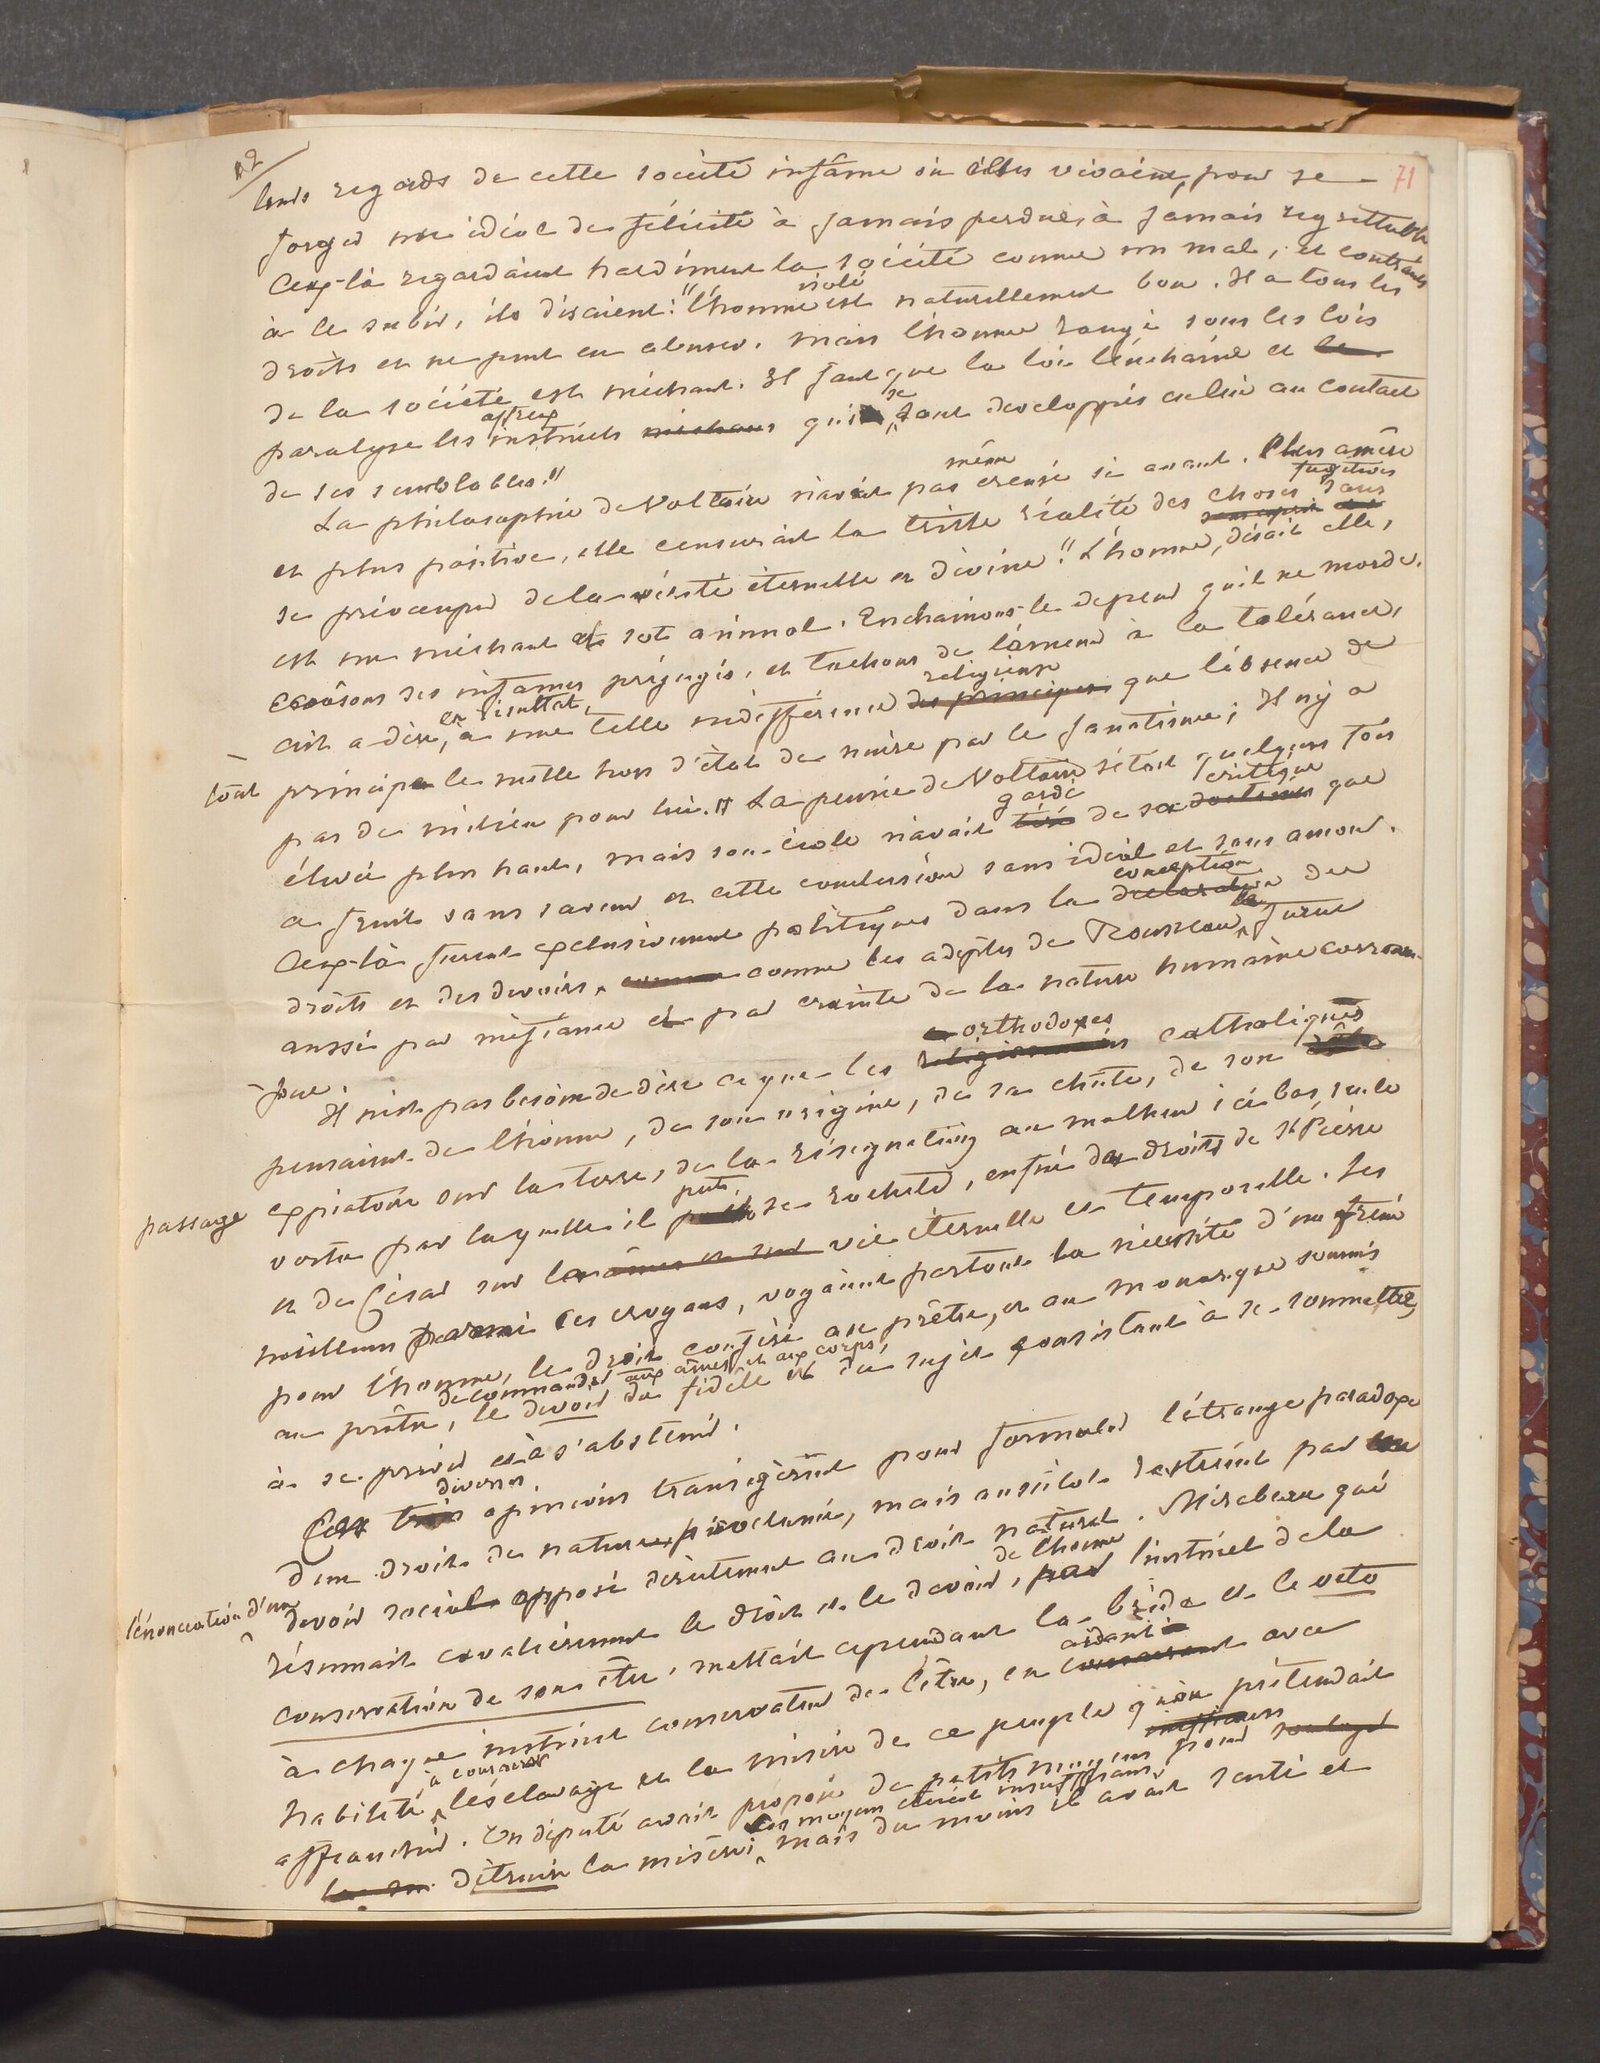 n2
71
leurs regards de cette société infâme où elles vivaient, pour se
forger une idéal de félicité à jamais perdue, à jamais regrettable
Ceux-là regardaient hardiment la société comme un mal, et contraints
à le subir, ils disaient: "l'homme isolé est naturellement bon. Il a tous les
droits et ne peut en abuser. Mais l'homme rangé sous les lois
de la société est méchant. Il faut que la loi l'enchaine et le
paralyse les affreux instincts méchans qui se sont developpés en lui au contact
de ses semblables."
La philosophie de Voltaire n'avait pas même creusé si avant. Plus amère
et plus positive, elle censurait la triste réalité des choses fugitives sans
se préoccuper de la vérité éternelle et divine. "L'homme, disait elle,
est un méchant et sot animal. Enchainons-le de peur qu'il ne morde.
écrasons ses infames préjugés, et tachons de l'amener à la tolérance,
c'est a dire, en résultat, a une telle indifférence religieuse des principes que l'absence de
tout principe le mette hors d'état de nuire par le fanatisme; Il n'y a
pas de milieu pour lui." La pensée de Voltaire s'était quelques fois
élevée plus haut, mais son école n'avait gardé tiré de sa critique doctrine que
ce fruit sans saveur et cette conclusion sans idéal et sans amour.
Ceux-là furent exclusivement politiques dans la conception declaration des
droits et des devoirs, comme comme les adeptes de Rousseau le furent
aussi par méfiance et par crainte de la nature humaine corrom-
pue.
Il n'est pas besoin de dire ce que les orthodoxes religionnaires catholiques
pensaient de l'homme, de son origine, de sa chûte, de son
passage expiatoire sur la terre, de la résignation au malheur ici bas, seule
vertu par laquelle il peut se racheter, enfin des droits de St Pierre
et de César sur la vie éternelle et temporelle. Les
meilleurs parmi ces croyans, voyaient partout la nécessité d'un frein
pour l'homme, le droit conféré au prêtre, et au monarque soumis
au prêtre, de commander aux âmes et aux corps, le devoir du fidèle et du sujet consistant à se soumettre,
à se priver et à s'abstenir.
Ces trois diverses opinions transigèrent pour formuler l'étrange paradoxe
d'un droit de nature proclamé, mais aussitôt restreint par
l'énonciation d'un devoir social opposé directement au droit naturel. Mirabeau qui
résumait cavalièrement le droit et le devoir de l'homme, par l'instinct de la
conservation de son être, mettait cependant la bride et le veto
à chaque instinct conservateur de l'être, en aidant avec
habileté à conserver l'esclavage et la misère de ce peuple qu'on prétendait
affranchir. Un député avait proposé de petits moyens insuffisans pour soulager
détruire la misère, Les moyens étaient insuffisans, mais du moins il avait senti et